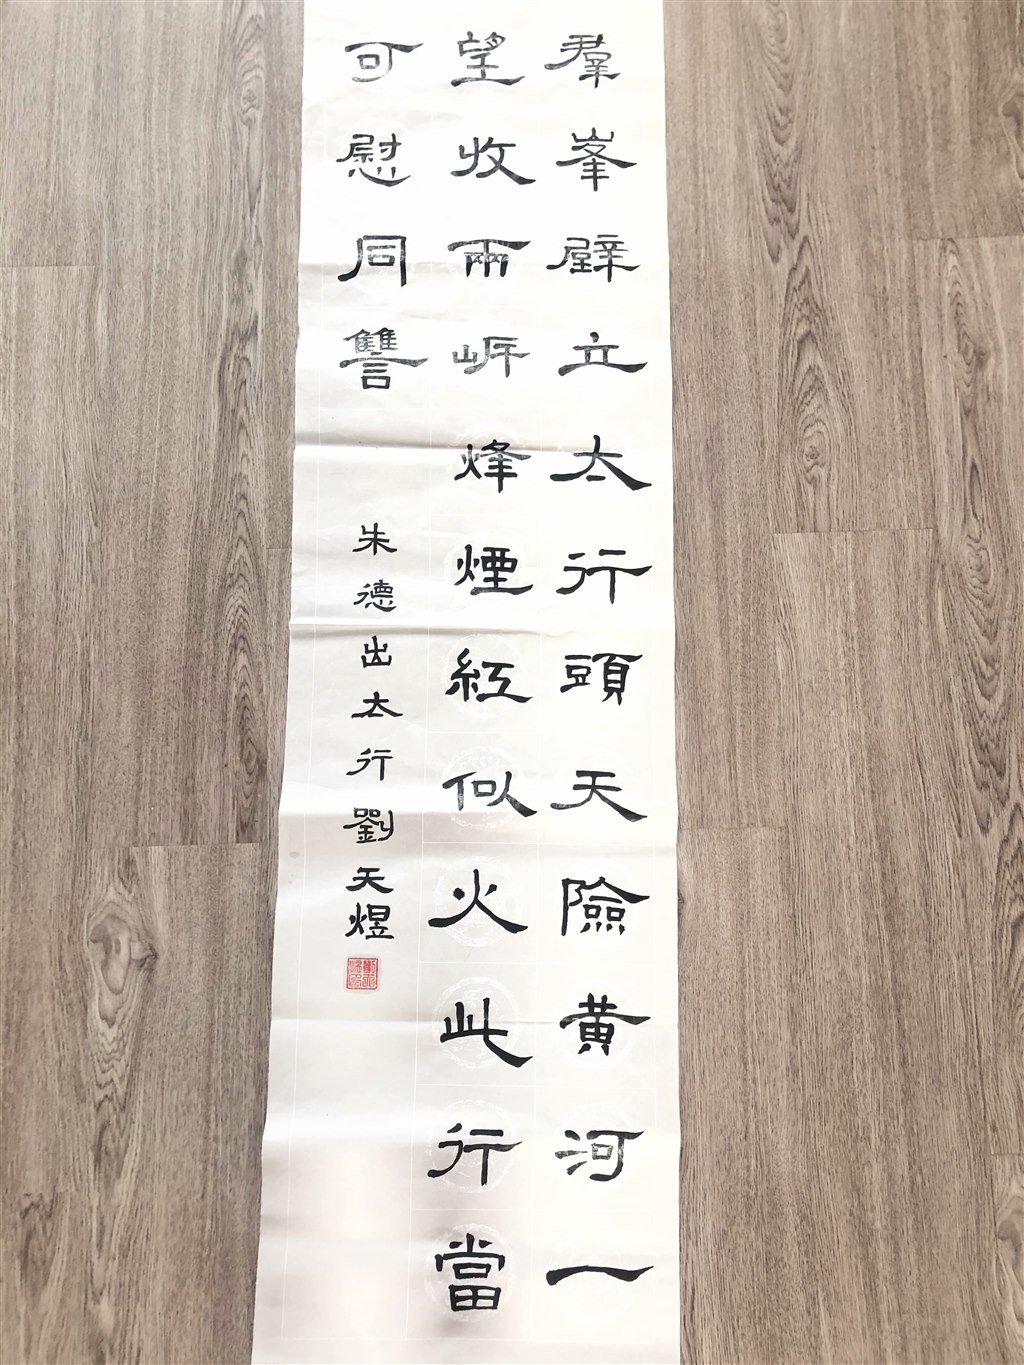 羣峯壁立太行頭天險黄河一
望收兩岸烽煙紅似火此行當
可慰同讐
朱德出太行劉天煜